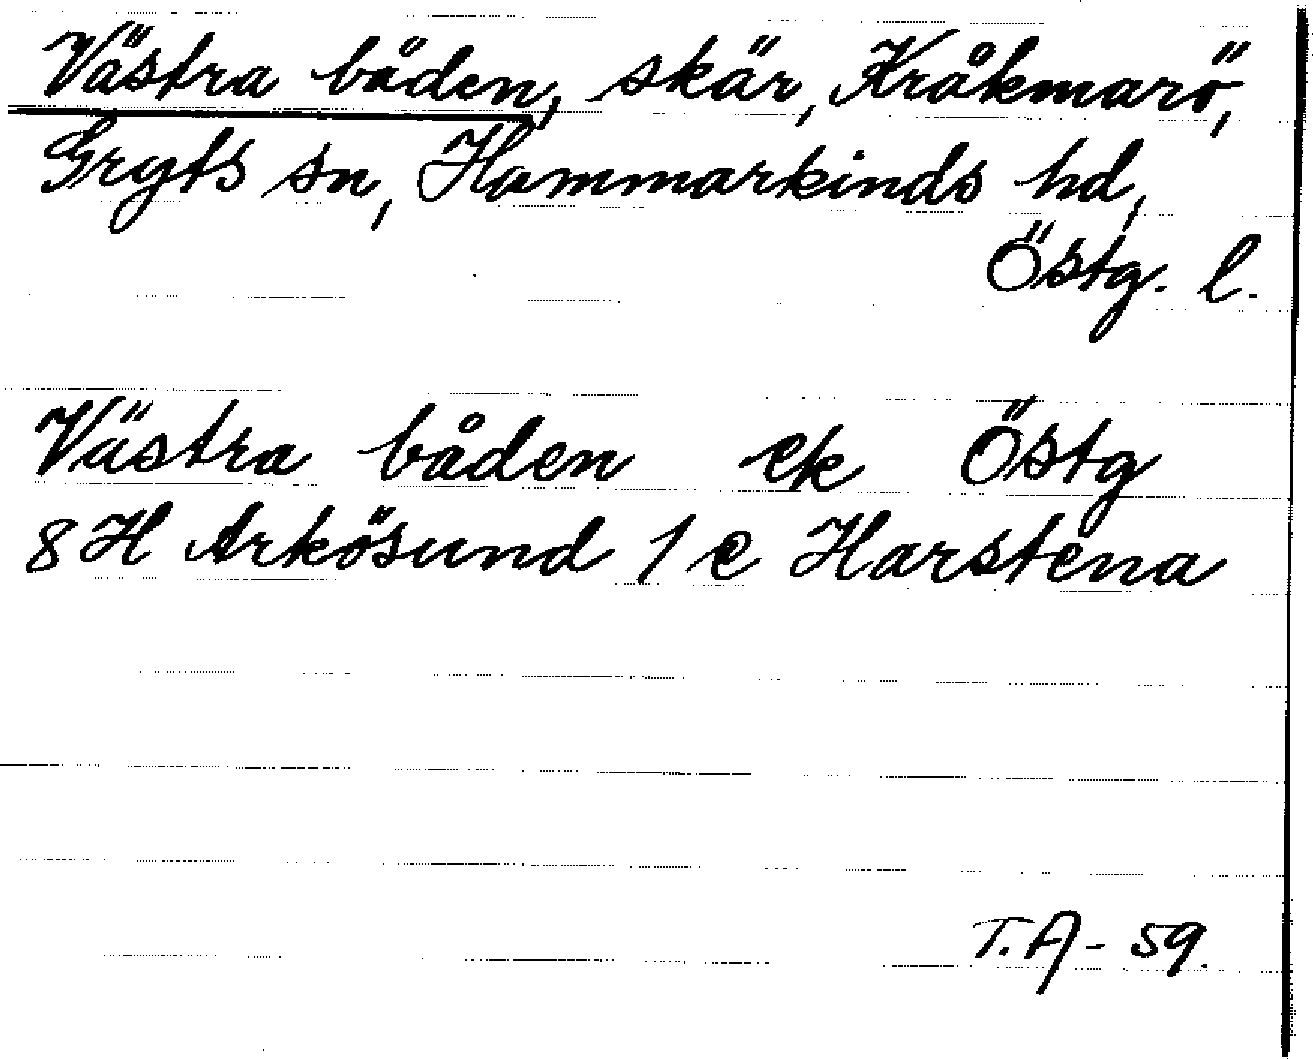 Västra båden, skär, Kråkmarö,
Gryts sn, Hammarkinds hd,
Östg. l.
Västra båden ek Östg
8H Arkösund 1 e Harstena
T.A - 59.